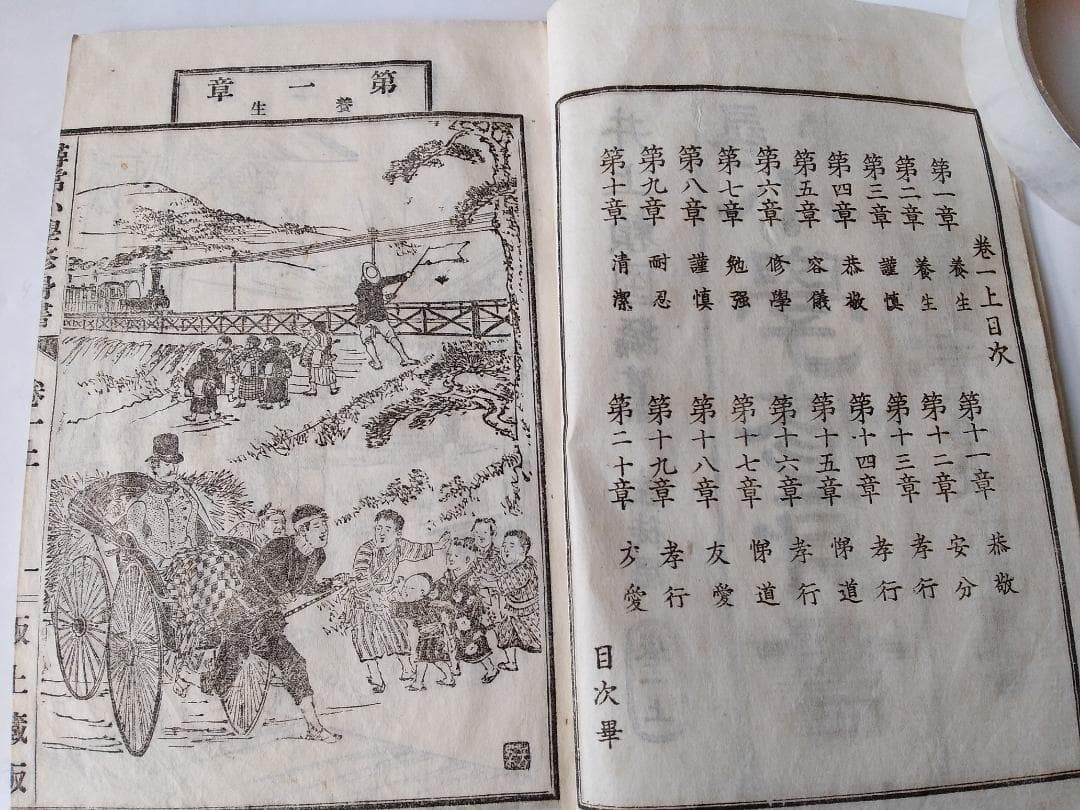 卷一上目次
第一章 養生
第二章 養生
第三章 謹慎
第四章 恭敬
第五章 容儀
第六章 修學
第七章 勉强
第八章 謹慎
第九章 耐忍
第十章 清潔
第十一章 恭敬
第十二章 安分
第十三章 孝行
第十四章 孝行
第十五章 悌道
第十六章 孝行
第十七章 悌道
第十八章 友愛
第十九章 孝行
第二十章 友愛
目次畢
第一章
養生
卷一上
一
上藏版